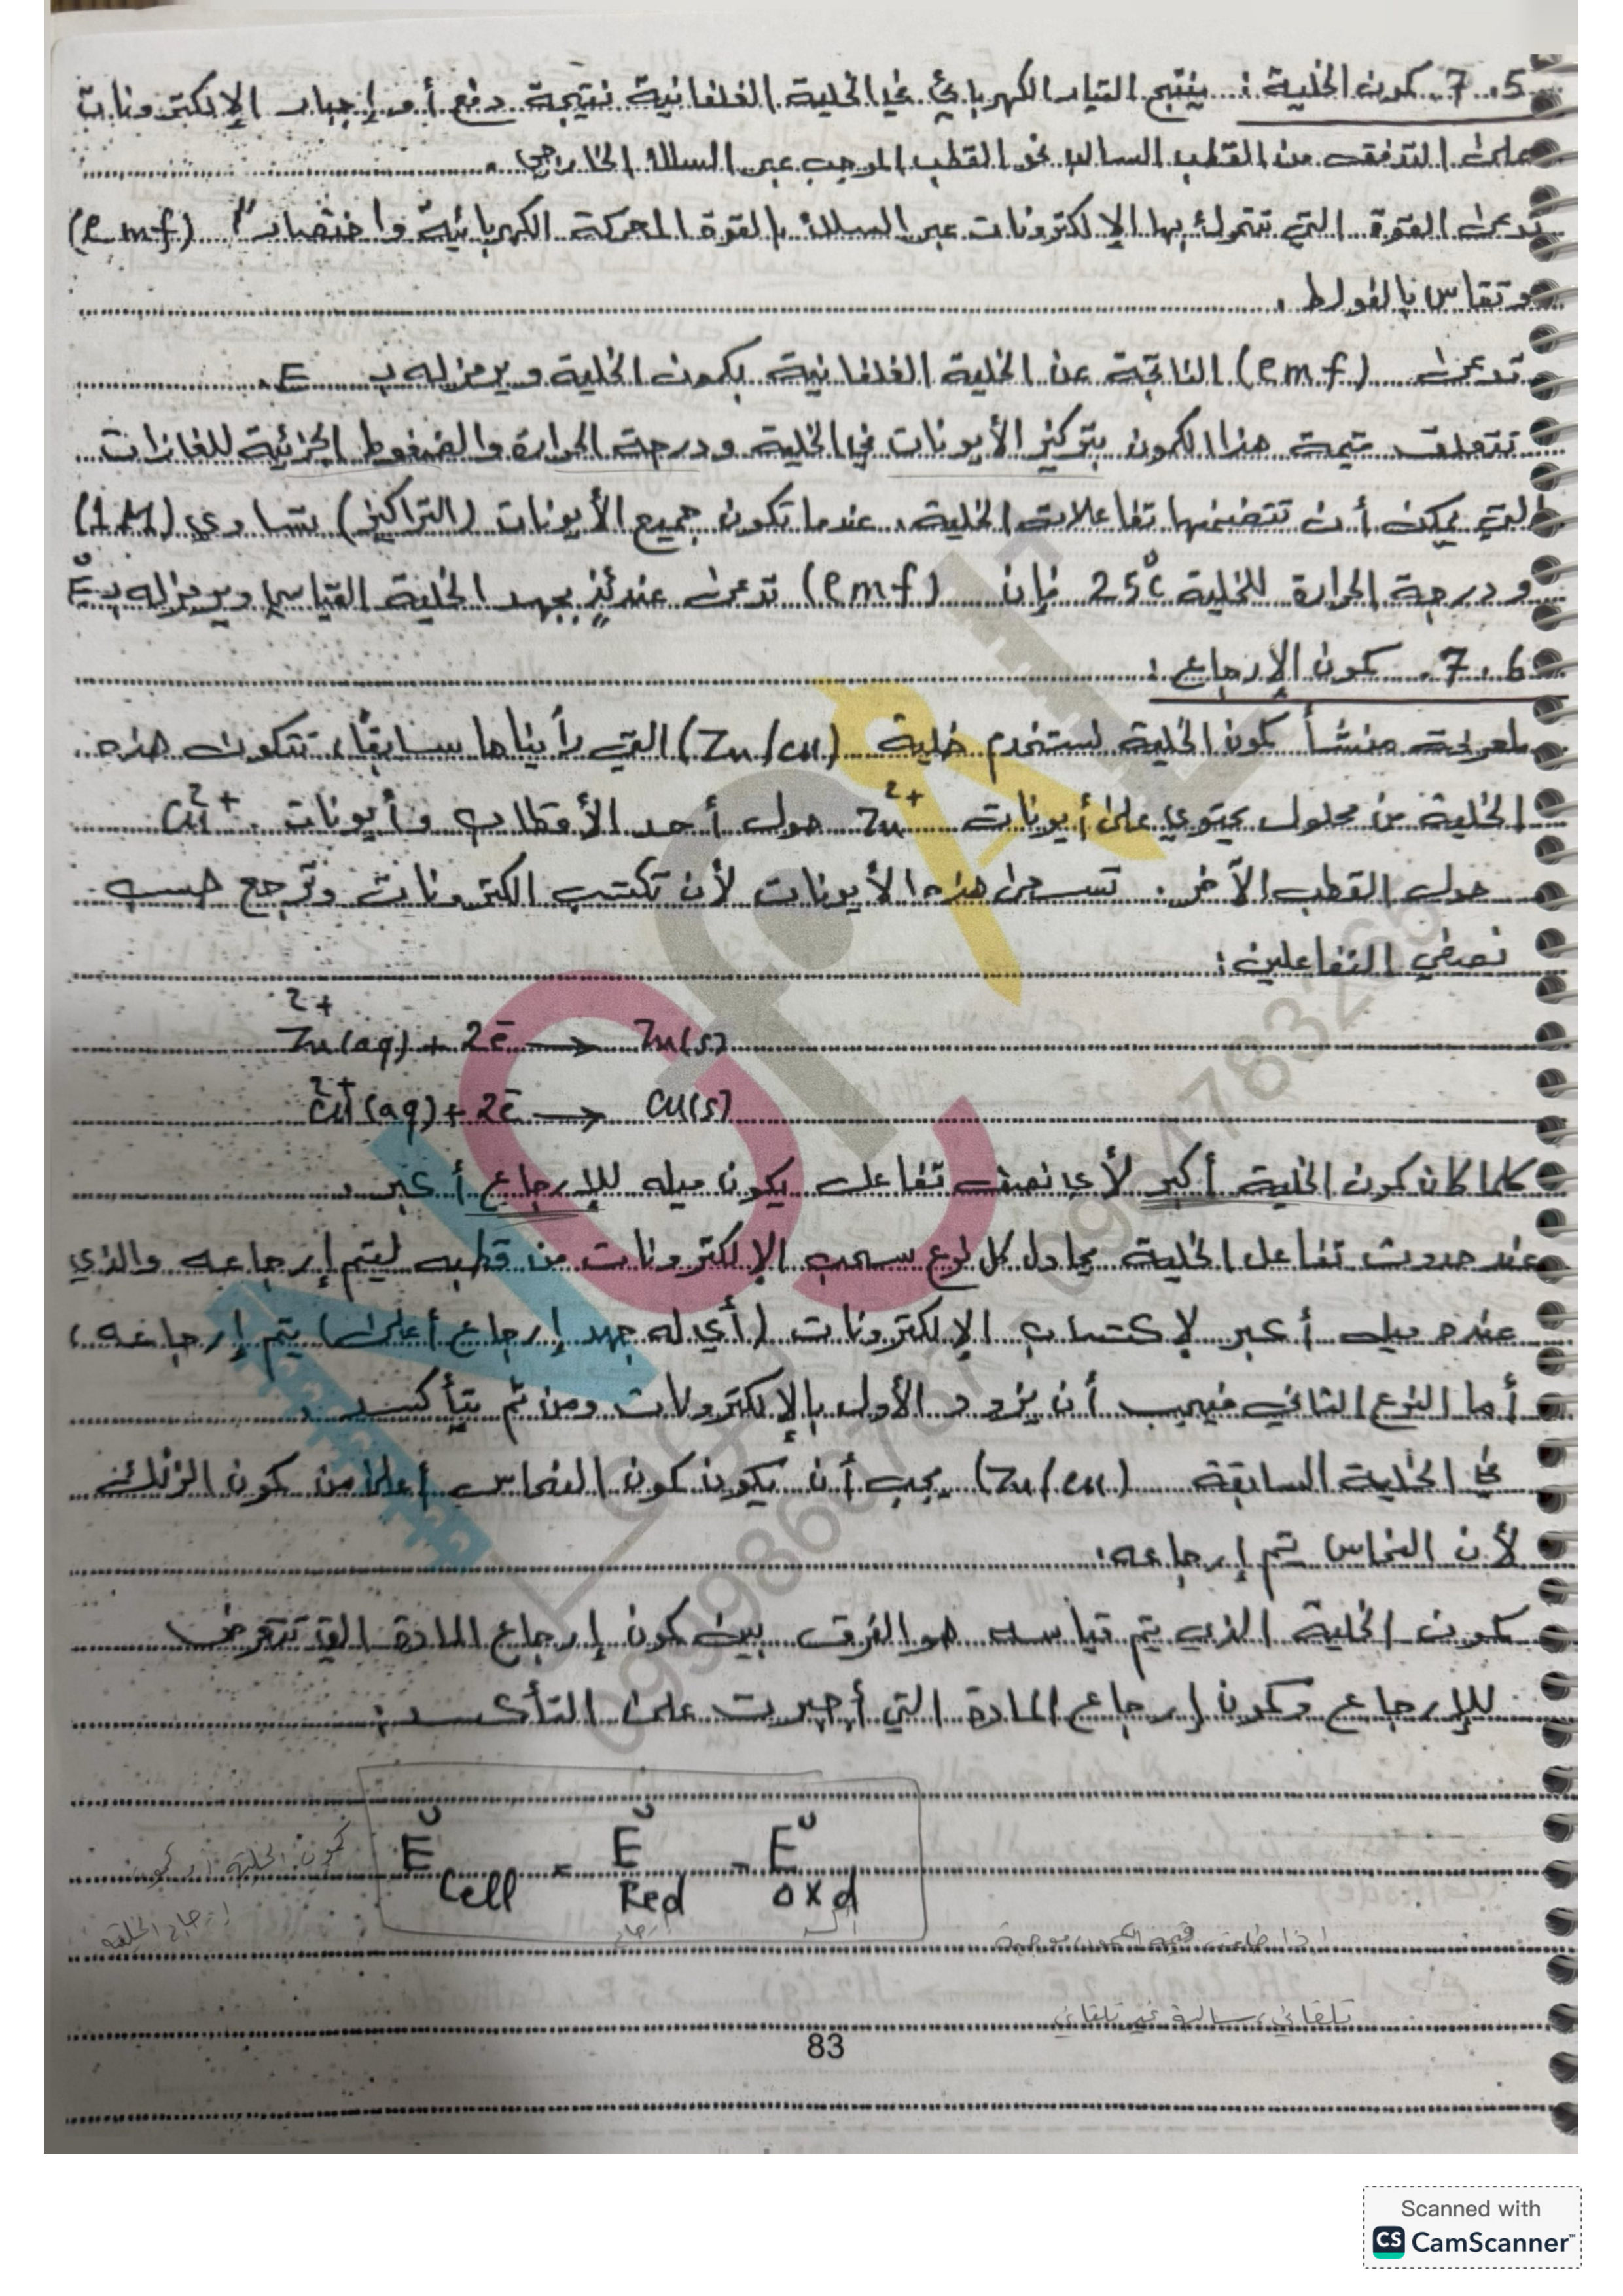 7.5. كمون الخلية: ينتج التيار الكهربائي في الخلية الغلفانية نتيجة دفع أو إجبار الإلكترونات
على التدفق من القطب السالب نحو القطب الموجب عبر السلك الخارجي.
تدعى القوة التي تتحرك بها الإلكترونات عبر السلك بالقوة المحركة الكهربائية واختصاراً (emf)
وتقاس بالفولط.
تدعى (emf) الناتجة عن الخلية الغلفانية بكمون الخلية ويرمز له بـ E.
تتعلق قيمة هذا الكمون بتركيز الأيونات في الخلية ودرجة الحرارة والضغوط الجزئية للغازات
التي يمكن أن تتضمنها تفاعلات الخلية. عندما تكون جميع الأيونات (التراكيز) تساوي (1M)
ودرجة الحرارة للخلية 25°C فإن (emf) تدعى عندئذٍ بجهد الخلية القياسي ويرمز له بـ E°
7.6. كمون الإرجاع:
لمعرفة منشأ كمون الخلية نستخدم خلية (Zn/Cu) التي رأيناها سابقاً، تتكون هذه
الخلية من محلول يحتوي على أيونات Zn²⁺ حول أحد الأقطاب وأيونات Cu²⁺
حول القطب الآخر. تسعى هذه الأيونات لأن تكتسب الكترونات وترجع حسب
نصفي التفاعلين:
Zn²⁺(aq) + 2e⁻ → Zn(s)
Cu²⁺(aq) + 2e⁻ → Cu(s)
كلما كان كمون الخلية أكبر لأي نصف تفاعل يكون ميله للإرجاع أكبر.
عند حدوث تفاعل الخلية يحاول كل نوع سحب الإلكترونات من قطبه ليتم إرجاعه والذي
عنده ميل أكبر لإكتساب الإلكترونات (أي له جهد إرجاع أعلى) يتم إرجاعه،
أما النوع الثاني فيجب أن يزود الأول بالإلكترونات ومن ثم يتأكسد.
في الخلية السابقة (Zn/Cu) يجب أن يكون كمون النحاس أعلى من كمون الزنك
لأن النحاس يتم إرجاعه.
كمون الخلية الذي يتم قياسه هو الفرق بين كمون إرجاع المادة التي تتعرض
للإرجاع وكمون إرجاع المادة التي أجبرت على التأكسد:
E°Cell = E°Red - E°oxd
كمون الخلية
إرجاع
اذا طلعت قيمة الكمون موجبة
تلقائي، سالبة غير تلقائي
83
Scanned with
CS CamScanner